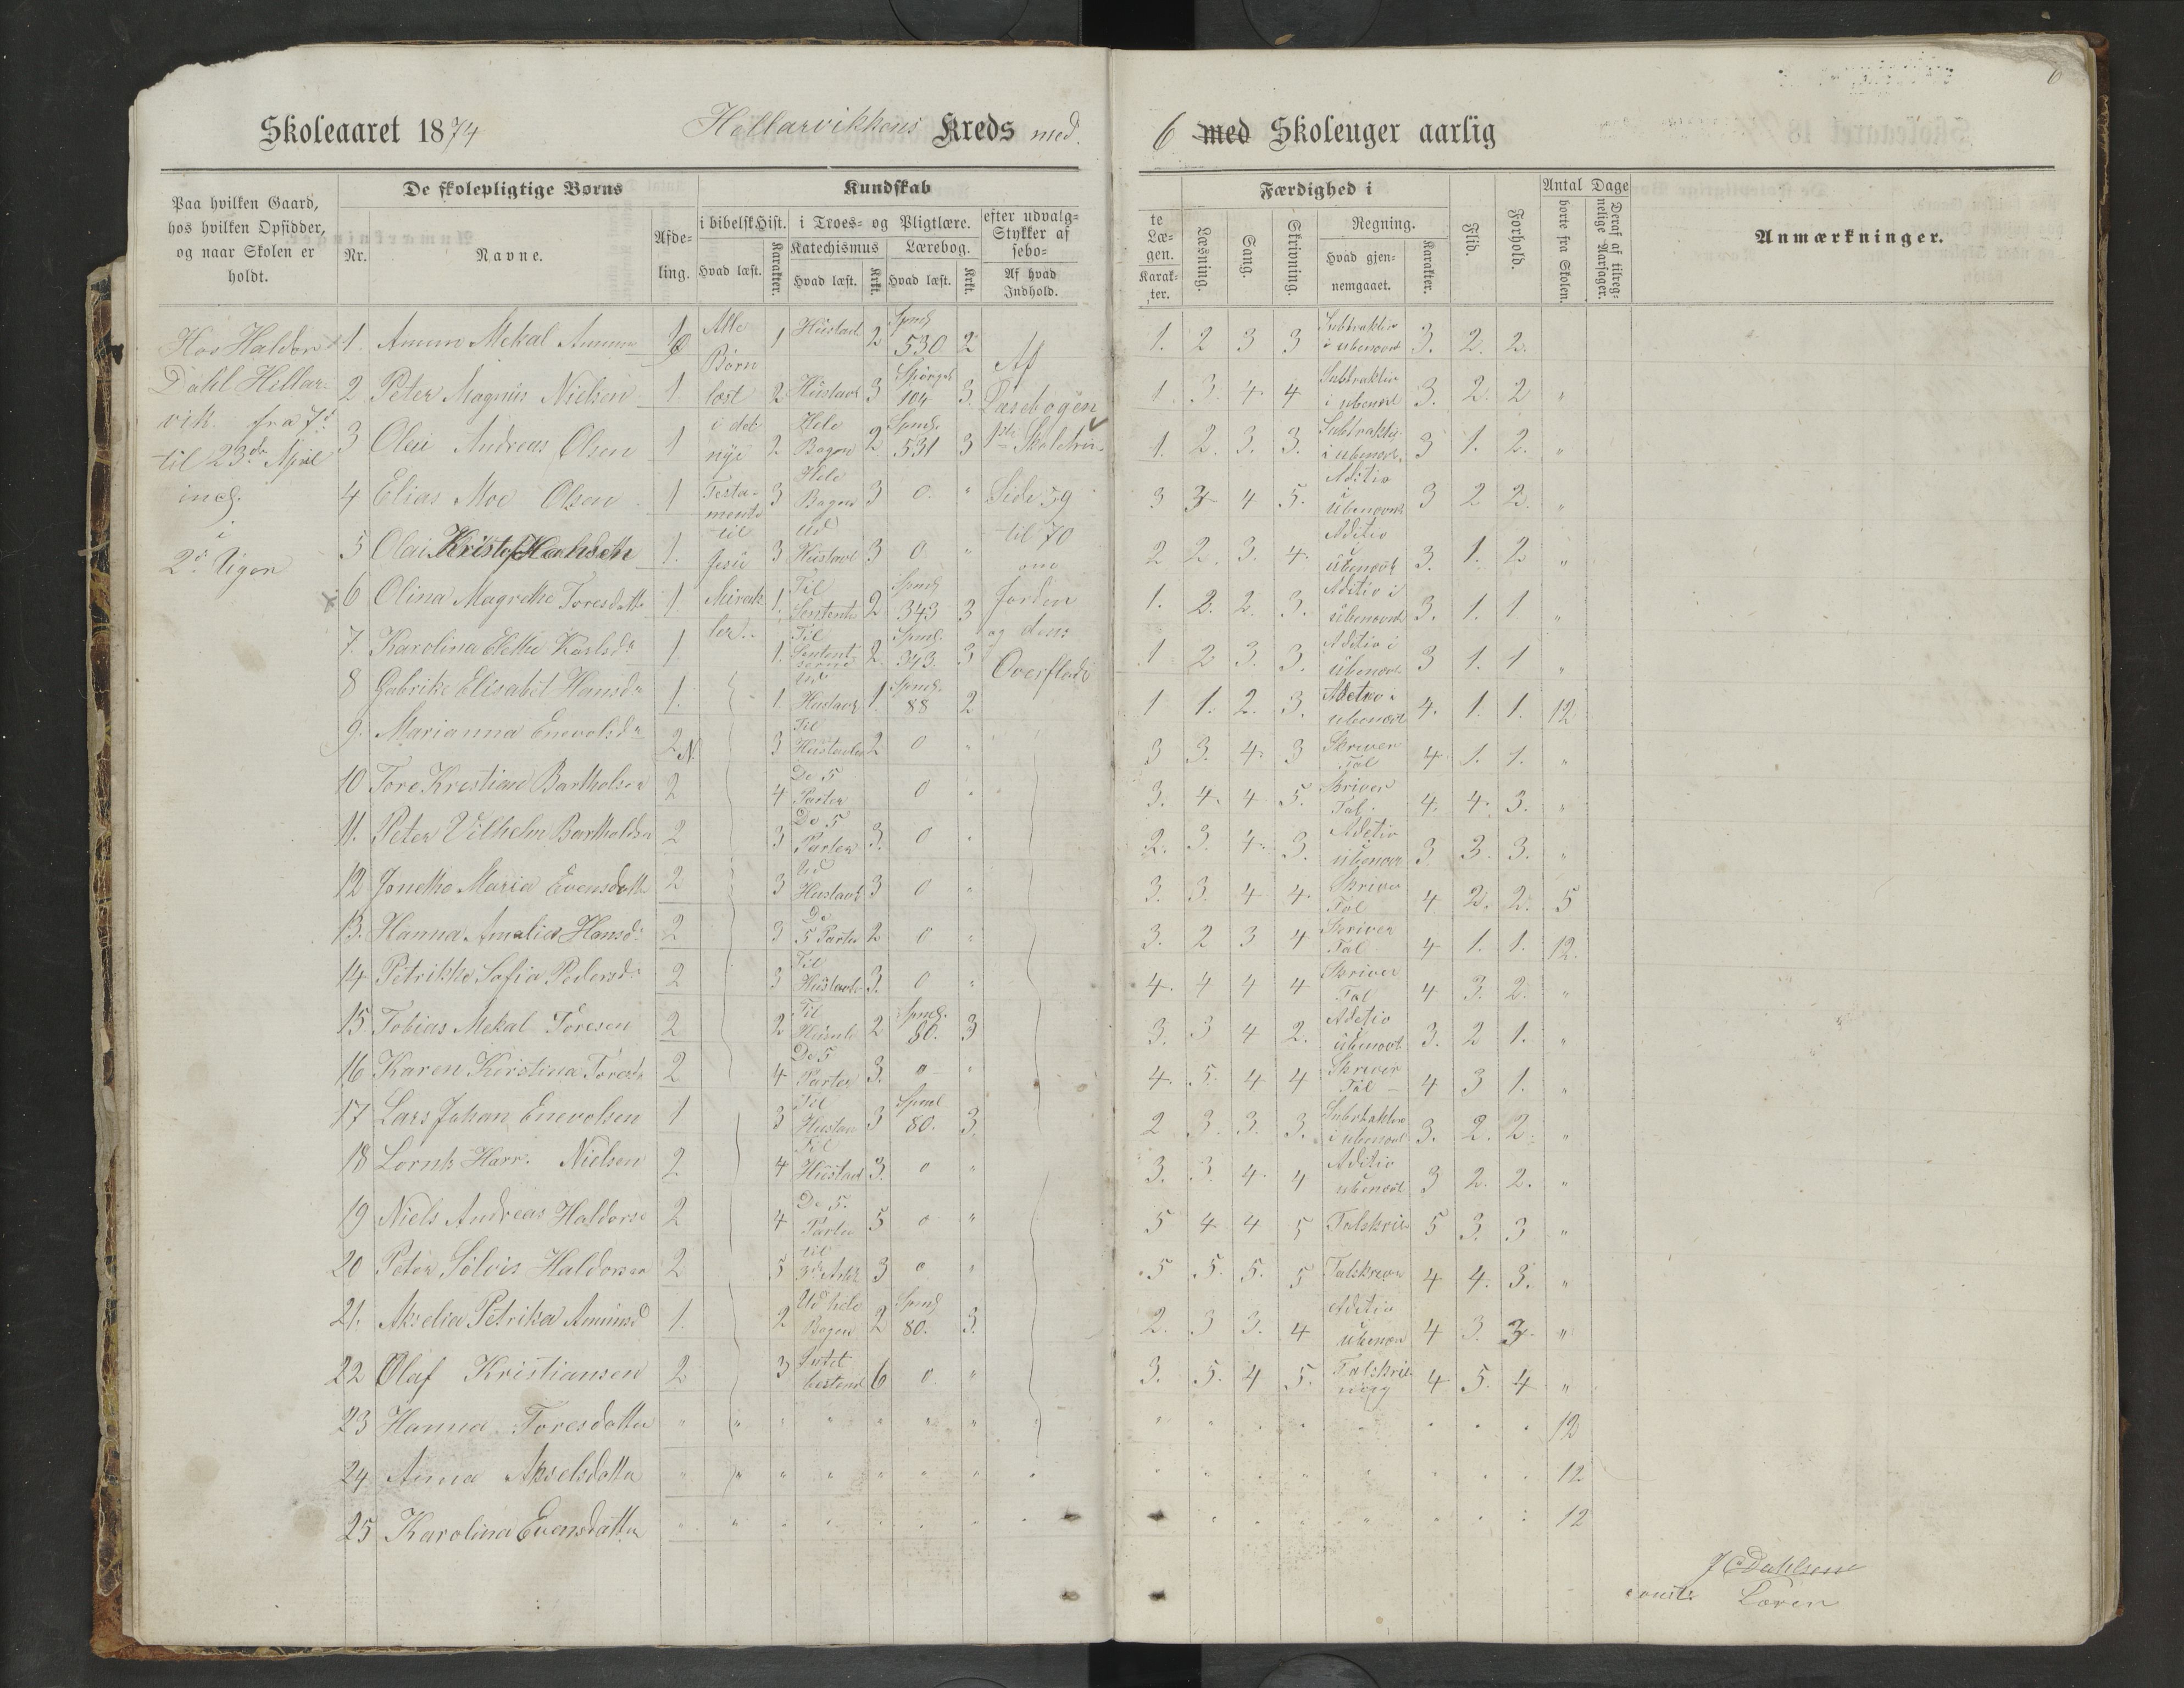 Skoleaaret 1874 Hellarvikkens Kreds med
6 med Skoleuger aarlig
Paa hvilken Gaard, hos hvilken Opsidder, og naar Skolen er holdt.
De skolepligtige Børns
Nr. Navne. Afdeling.
Kundskab
i bibelsk Hist. i Troes- og Pligtlære. efter udvalg-
Katechismus Lærebog. Stykker af sebo-
Hvad læst. Karakter. Hvad læst. Krkt. Hvad læst. Krkt. Af hvad Indhold.
te Læ- gen. Karak- ter.
Færdighed i
Læsning. Sang. Skrivning. Regning. Hvad gjen- nemgaaet. Karakter.
Flid. Forhold.
Antal Dage
borte fra Skolen. Deraf af tilreg- nelige Aarsager.
Anmærkninger.
Hos Haldor
Dahl Hellar-
vik. fra 7d
til 23de April
incl.
i
2d Uger
Alle
Børn
læst
i det
nye
Testa-
mente
til
Jesu
Mirak-
ler.
Af
Læsebogen
1ste Skoletrin
Side 59
til 70
om
Jorden
og dens
Overflade
1. Amun Mekal Amuns 1 1 Hustavl 2 Spml 530 2 1. 2 3 3 Subtraktio i ubenævnt 3. 2. 2.
2 Peter Magnus Nielsen 1. 2 Hustavl 3 Spørgs 104 3. 1. 3. 4. 4 Subtraktio i ubenævnt 3. 2. 2 "
3 Olai Andreas Olsen 1 2 Hele Bogen 2 Spml. 531 3 1. 2. 3. 3. Subtraktio i ubenævnt 3 1. 2. "
4 Elias Moe Olsen 1 3 Hele Bogen 3 0. " 3 3 4 5. Aditio i ubenævnt 3 2 2. "
5 Olai Kristof Hansen 1. 3 Ud Hustavl 3 0 " 2 2. 3. 4. Aditio i ubenævnt 3. 1. 2 "
6 Olina Magrethe Toresdatter 1. 1. Til Sentents 2 Spml 343 3 1. 2. 2. 3. Aditio i ubenævnt 3. 1. 1 "
7. Karolina Elethe Karlsdr 1 1. Til Sentent- serne 2. Spml. 343. 3 1 2 3. 3. Aditio i ubenævnt 3 1. 1 "
8 Gabrike Elisabet Hansdr 1. 1 Ud Hustavl 1 Spml. 88 2 1 1. 2. 3. Adetio i ubenævnt 4. 1. 1. 12
9. Marianna Enevolsdr 2 N. 3 Til Hustavlen 2 0 " 3 3. 4. 3 Skriver Tal 4. 1. 1. "
10 Tore Krestian Bartholsen 2 4 De 5 Parter 0 " 3. 4. 4 5. Skriver Tal 4. 4. 3. "
11. Peter Vilhelm Bartholdsen 2 3 De 5 Parter 3. 0 " 2. 3. 4. 3. Adetio i ubenævn 3. 3. 3. "
12 Jonetha Maria Evensdatter 2 3 Ud Hustavl 3 0 " 3. 3. 4 4. Skriver Tal 4 2. 2. 5
13. Hanna Amalia Hansd. 2 3 De 5 Parter 2 0 " 3. 2 3 4 Skriver Tal 4 1. 1. 12.
14 Petrikke Sofia Pedersd. 2 3 Til Hustavle 3. 0 " 4. 4 4 4 Skriver Tal 4 3. 2. "
15 Tobias Mekal Toresen 2 2 Til 2 Spml. 80. 3 3. 3 4 2. Adetio i ubenævt. 3. 2 1. "
16 Karen Kirstina Toresdr 2 4 De 5 Parter 3. 0 " 4. 5. 4 4 Skriver Tal 4 3 1. "
17 Lars Johan Enevolsen 1 3 Til Hustav 3 Spml 80. 3. 2 3. 3. 3. Subtraktio i ubenævt 3. 2. 2. "
18 Lornts Harr. Nielsen 2 4 Til Hustavl 3. 0 " 3. 3. 4. 4 Aditio ubenævt 3 2. 2. "
19 Niels Andreas Haldorse 2 4 De 5. Parter 5 0 " 5 4 4 5 Talskriv 5 3. 3 "
20 Peter Sølvis Haldorsen 2 5 til 3die Artk 3 0 " 5 5. 5. 5 Talskreve 4 4. 3. "
21. Akselia Petrika Amunsd 1. 2 Ud hele Bogen 2 Spml 80. 3. 2. 3 3. 4 Aditio ubenæv 4 3. 3. "
22 Olaf Kristiansen 2 3 Intet bestemt 6 0. " 3. 5. 4 5. Talskriv- ning 4 5. 4 "
23 Hanna Toresdatter " " " " " " " " 12
24 Anna Akselsdatter " " " " " " " 12
25 Karolina Evensdatter " " 12
J C Dahlsen
const. Lærer